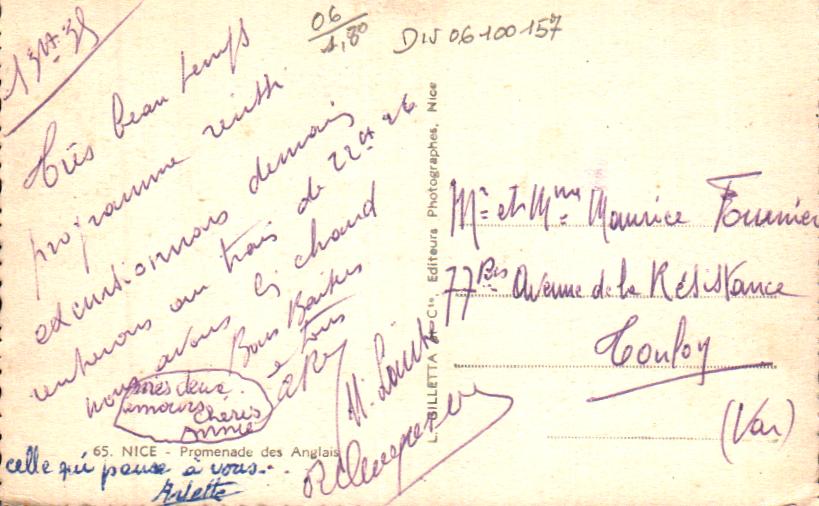 06
1,80
DIV 06 100 157
Très beau temps
programme réussi
excursionnons demain
rentrerons au train de 22h 26
nous avons chaud
Bons Baisers
à tous
mes deux
amours
chéris
Annie
celle qui pense à vous...
Arlette
65. NICE - Promenade des Anglais
L. GILLETTA & Cie Editeurs Photographes, Nice
Mr et Mme Maurice Fournier
77 Bis Avenue de la Résistance
Toulon
(Var)